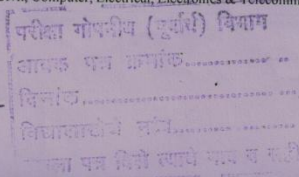 Computer, Electrical, Electronics & Telecomm
परीक्षा गोपनीय (पूर्वार्ध) विभाग
आवक पत्र क्रमांक
दिनांक
विद्याशाखेचे नांव
पत्र दिले त्याचे नाव व सही